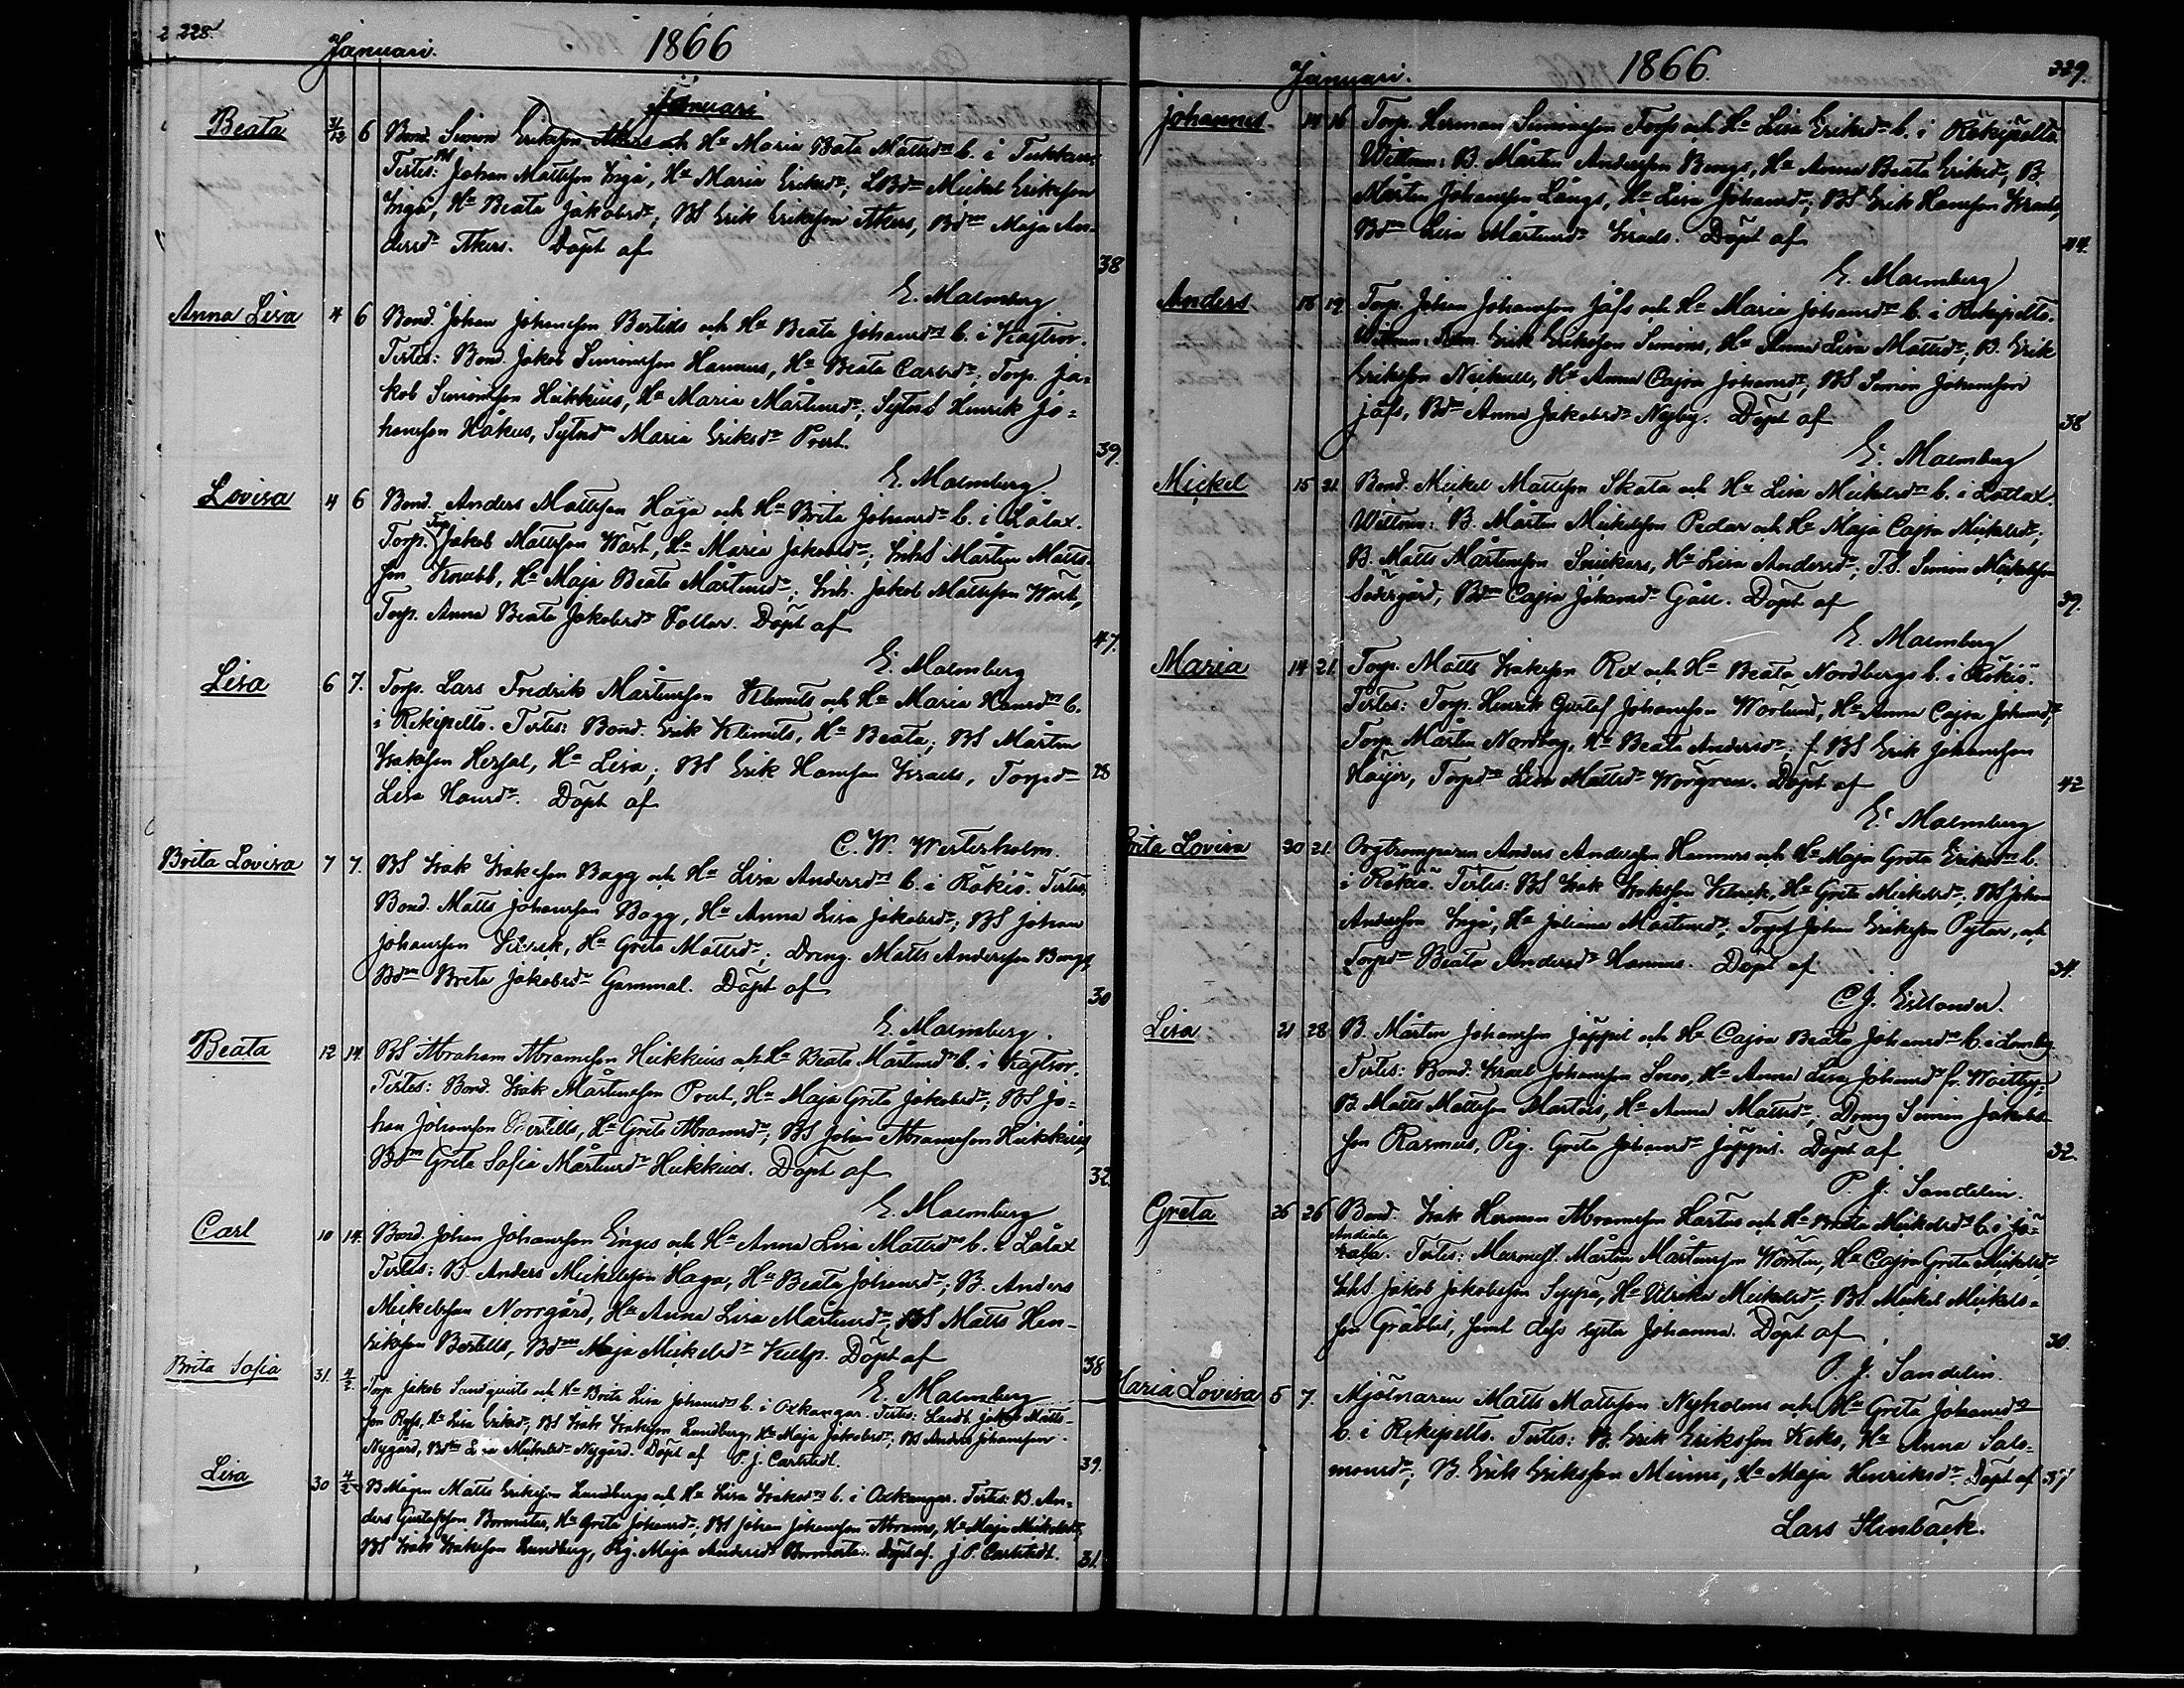 228.
Januari. 1866
Januari
Beata 31/12 6 Bond. Simon Eriksson Akers och Hu Maria Beata Mattsdr b. i Tukkur
Testes: Johan Mattsson Ingå, Hu Maria Eriksdr; LBdr Mickel Eriksson
Ingå, Hu Beata Jakobsdr; BS Erik Eriksson Akers, Bdr Maja An-
dersdr Akers. Döpt af 38
E. Malmberg
Anna Lisa 4 6 Bond. Johan Johansson Bertils och Hu Beata Johansdr b. i
Testes: Bond. Jakob Simonsson Hannus, Hu Beata Carlsdr; Torp. Ja-
kob Simonsson Heikkius, Hu Maria Mårtensdr; Sytn.S Henrik Jo-
hansson Håkus, Sytnsdr Maria Eriksdr Prest. 39.
E. Malmberg
Lovisa 4 6 Bond. Anders Mattsson Haga och Hu Brita Johansdr b. i Lålax.
Torp. Jakob Mattsson Wärt, Hu Maria Jakobsdr; Inh.S Mårten Matts-
son Knubb, Hu Maja Beata Mårtensdr; Inh. Jakob Mattsson Wärt,
Torp. Anna Beata Jakobsdr Follar. Döpt af 47.
E. Malmberg
Lisa 6 7. Torp. Lars Fredrik Mårtensson Klemets och Hu Maria Hansdr b.
i Rekipelto. Testes: Bond. Erik Klemets, Hu Beata; BS Mårten
Isaksson Herfal, Hu Lisa; BS Erik Hansson Israels, Torpdr 28
Lisa Hansdr. Döpt af
C. W. Westerholm.
Brita Lovisa 7 7. BS Isak Isaksson Bagg och Hu Lisa Andersdr b. i Rökiö. Testes:
Bond. Matts Johansson Bagg, Hu Anna Lisa Jakobsdr; BS Johan
Johansson, Hu Greta Mattsdr; Dreng. Matts Andersson Bengs,
Bdr Brita Jakobsdr Gammal. Döpt af 30
E. Malmberg.
Beata 12 14. BS Abraham Abramsson Heikkius och Hu Beata Mårtensdr b. i
Testes: Bond. Isak Mårtensson Prest, Hu Maja Greta Jakobsdr; BS Jo-
han Johansson Bertills, Hu Greta Abramsdr; BS Johan Abramsson Heikkius,
Bdr Greta Sofia Mårtensdr Heikkius. Döpt af 32.
E. Malmberg
Carl 10 14. Bond. Johan Johansson Enges och Hu Anna Lisa Mattsdr b. i Lålax
Testes: B. Anders Mickelsson Haga, Hu Beata Johansdr; B. Anders
Mickelsson Norrgård, Hu Anna Lisa Mårtensdr; BS Matts Hen-
riksson Bertills, Bdr Maja Mickelsdr Kulp. Döpt af 38
E. Malmberg
Brita Sofia 31. 4/2. Torp. Jakob Sandquist och Hu Brita Lisa Johansdr b. i Oxkangar. Testes: Landt. Jakob Matts-
son Ryss, Hu Lisa Eriksdr; BS Isak Isaksson Lundberg, Hu Maja Jakobsdr; BS Anders Johansson
Nygård, Bdr Lisa Mickelsdr Nygård. Döpt af P. J. Carlstedt. 39.
Lisa 30 4/2 B Mågen Matts Eriksson Lundberg och Hu Lisa Isaksdr b. i Oxkangar. Testes: B. An-
ders Gustafsson Bormester, Hu Greta Johansdr; BS Johan Johansson Abrams, Hu Maja Mickelsdr,
BS Isak Isaksson Lundberg, Pig. Maja Andersdr Bormester. Döpt af. J. P. Carlstedt. 31.
Januari. 1866. 229.
Johannes 14 16 Torp. Herman Simonsson Torp och Hu Lisa Eriksdr b. i Rekipelto.
Wittnen: B. Mårten Andersson Bengs, Hu Anna Beata Eriksdr; B.
Mårten Johansson Långs, Hu Lisa Johansdr; BS Erik Hansson Israels,
Bdr Lisa Mårtensdr Israels. Döpt af 44.
E. Malmberg
Anders 18 19 Torp. Johan Johansson Jåfs och Hu Maria Johansdr b. i Rekipelto.
Wittnen: Erik Eriksson Simons, Hu Anna Lisa Mattsdr; B. Erik
Eriksson, Hu Anna Cajsa Johansdr; BS Simon Johansson
Jåfs, Bdr Anna Jakobsdr Nyby. Döpt af 38
E. Malmberg
Mickel 15 21. Bond. Mickel Mattsson Skata och Hu Lisa Mickelsdr b. i Lotlax.
Wittnen: B. Mårten Mickelsson Pedar och Hu Maja Cajsa Mickelsdr;
B. Matts Mårtensson Snickars, Hu Lisa Andersdr; T.S. Simon Mickelsson
Södergård, Bdr Cajsa Johansdr Gåll. Döpt af 39.
E. Malmberg
Maria 14 21. Torp. Matts Isaksson Rex och Hu Beata Nordbergs b. i Rökiö.
Testes: Torp. Henrik Gustaf Johansson Worlund, Hu Anna Cajsa Johansdr;
Torp. Mårten Nordberg, Hu Beata Andersdr; f. BS Erik Johansson
Haijer, Torpdr Lisa Mattsdr Worgren. Döpt af 42
E. Malmberg
Brita Lovisa 20 21. Orgtramparen Anders Andersson Hannus och Hu Maja Greta Eriksdr b.
i Rökiö. Testes: BS Isak Isaksson, Hu Greta Mickelsdr; BS Johan
Andersson Ingå, Hu Juliana Mårtensdr; Torp.S Johan Eriksson Pytar, och
Torpdr Beata Andersdr Hannus. Döpt af 34.
C. J. Estlander.
Lisa 21 28 B. Mårten Johansson Jåppil och Hu Cajsa Beata Johansdr b. i Lomby
Testes: Bond. Israel Johansson, Hu Anna Lisa Johansdr fr. Woitby;
B. Matts Mattsson Martois, Hu Anna Mattsdr; Dreng Simon Jakobs-
son Rasmus, Pig. Greta Johansdr Jåppis. Döpt af 32.
P. J. Sandelin.
Greta 26 26 Bond. Isak Herman Abramsson Hartus och Hu Beata Mickelsdr b. i
Andiala
Testes: Mårten Mårtensson, Hu Cajsa Greta Mickelsdr
Inh.S Jakob Jakobsson Seppä, Hu Ulrika Mickelsdr; BS. Mickel Mickels-
son Gräbbil, samt dess syster Johanna. Döpt af 30.
P. J. Sandelin.
Maria Lovisa 5 7. Mjölnaren Matts Mattsson Nyholms och Hu Greta Johansdr
b. i Rekipelto. Testes: B. Erik Eriksson Keko, Hu Anna Salo-
monsdr; B. Erik Eriksson Minni, Hu Maja Henriksdr. Döpt af 37
Lars Stenbäck.